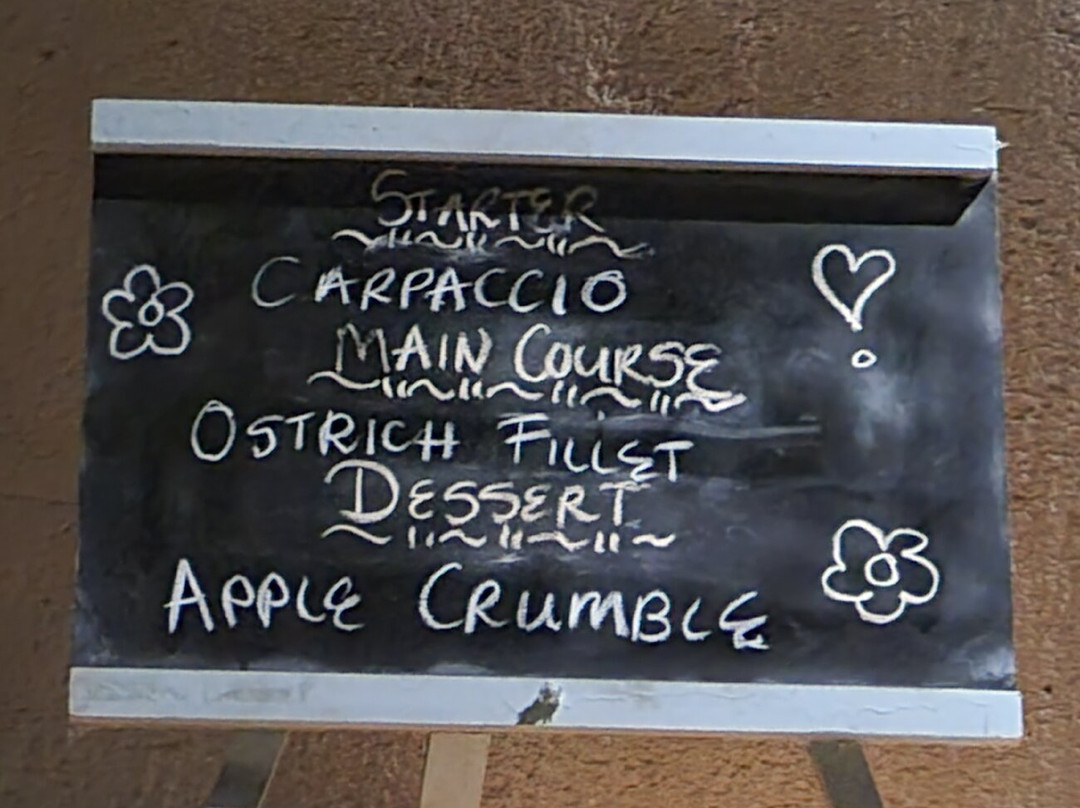 STARTER
CARPACCIO
MAIN COURSE
OSTRICH FILLET
DESSERT
APPLE CRUMBLE